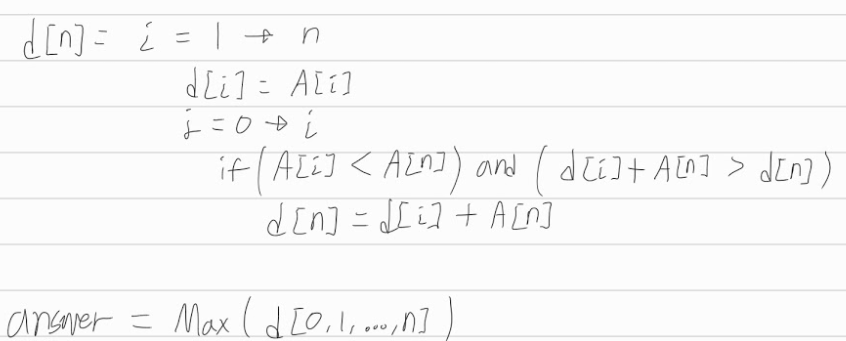 d[n] = i = 1 → n
d[i] = A[i]
j = 0 → i
if (A[i] < A[n]) and (d[i] + A[n] > d[n])
d[n] = d[i] + A[n]
answer = Max(d[0,1,...,n])